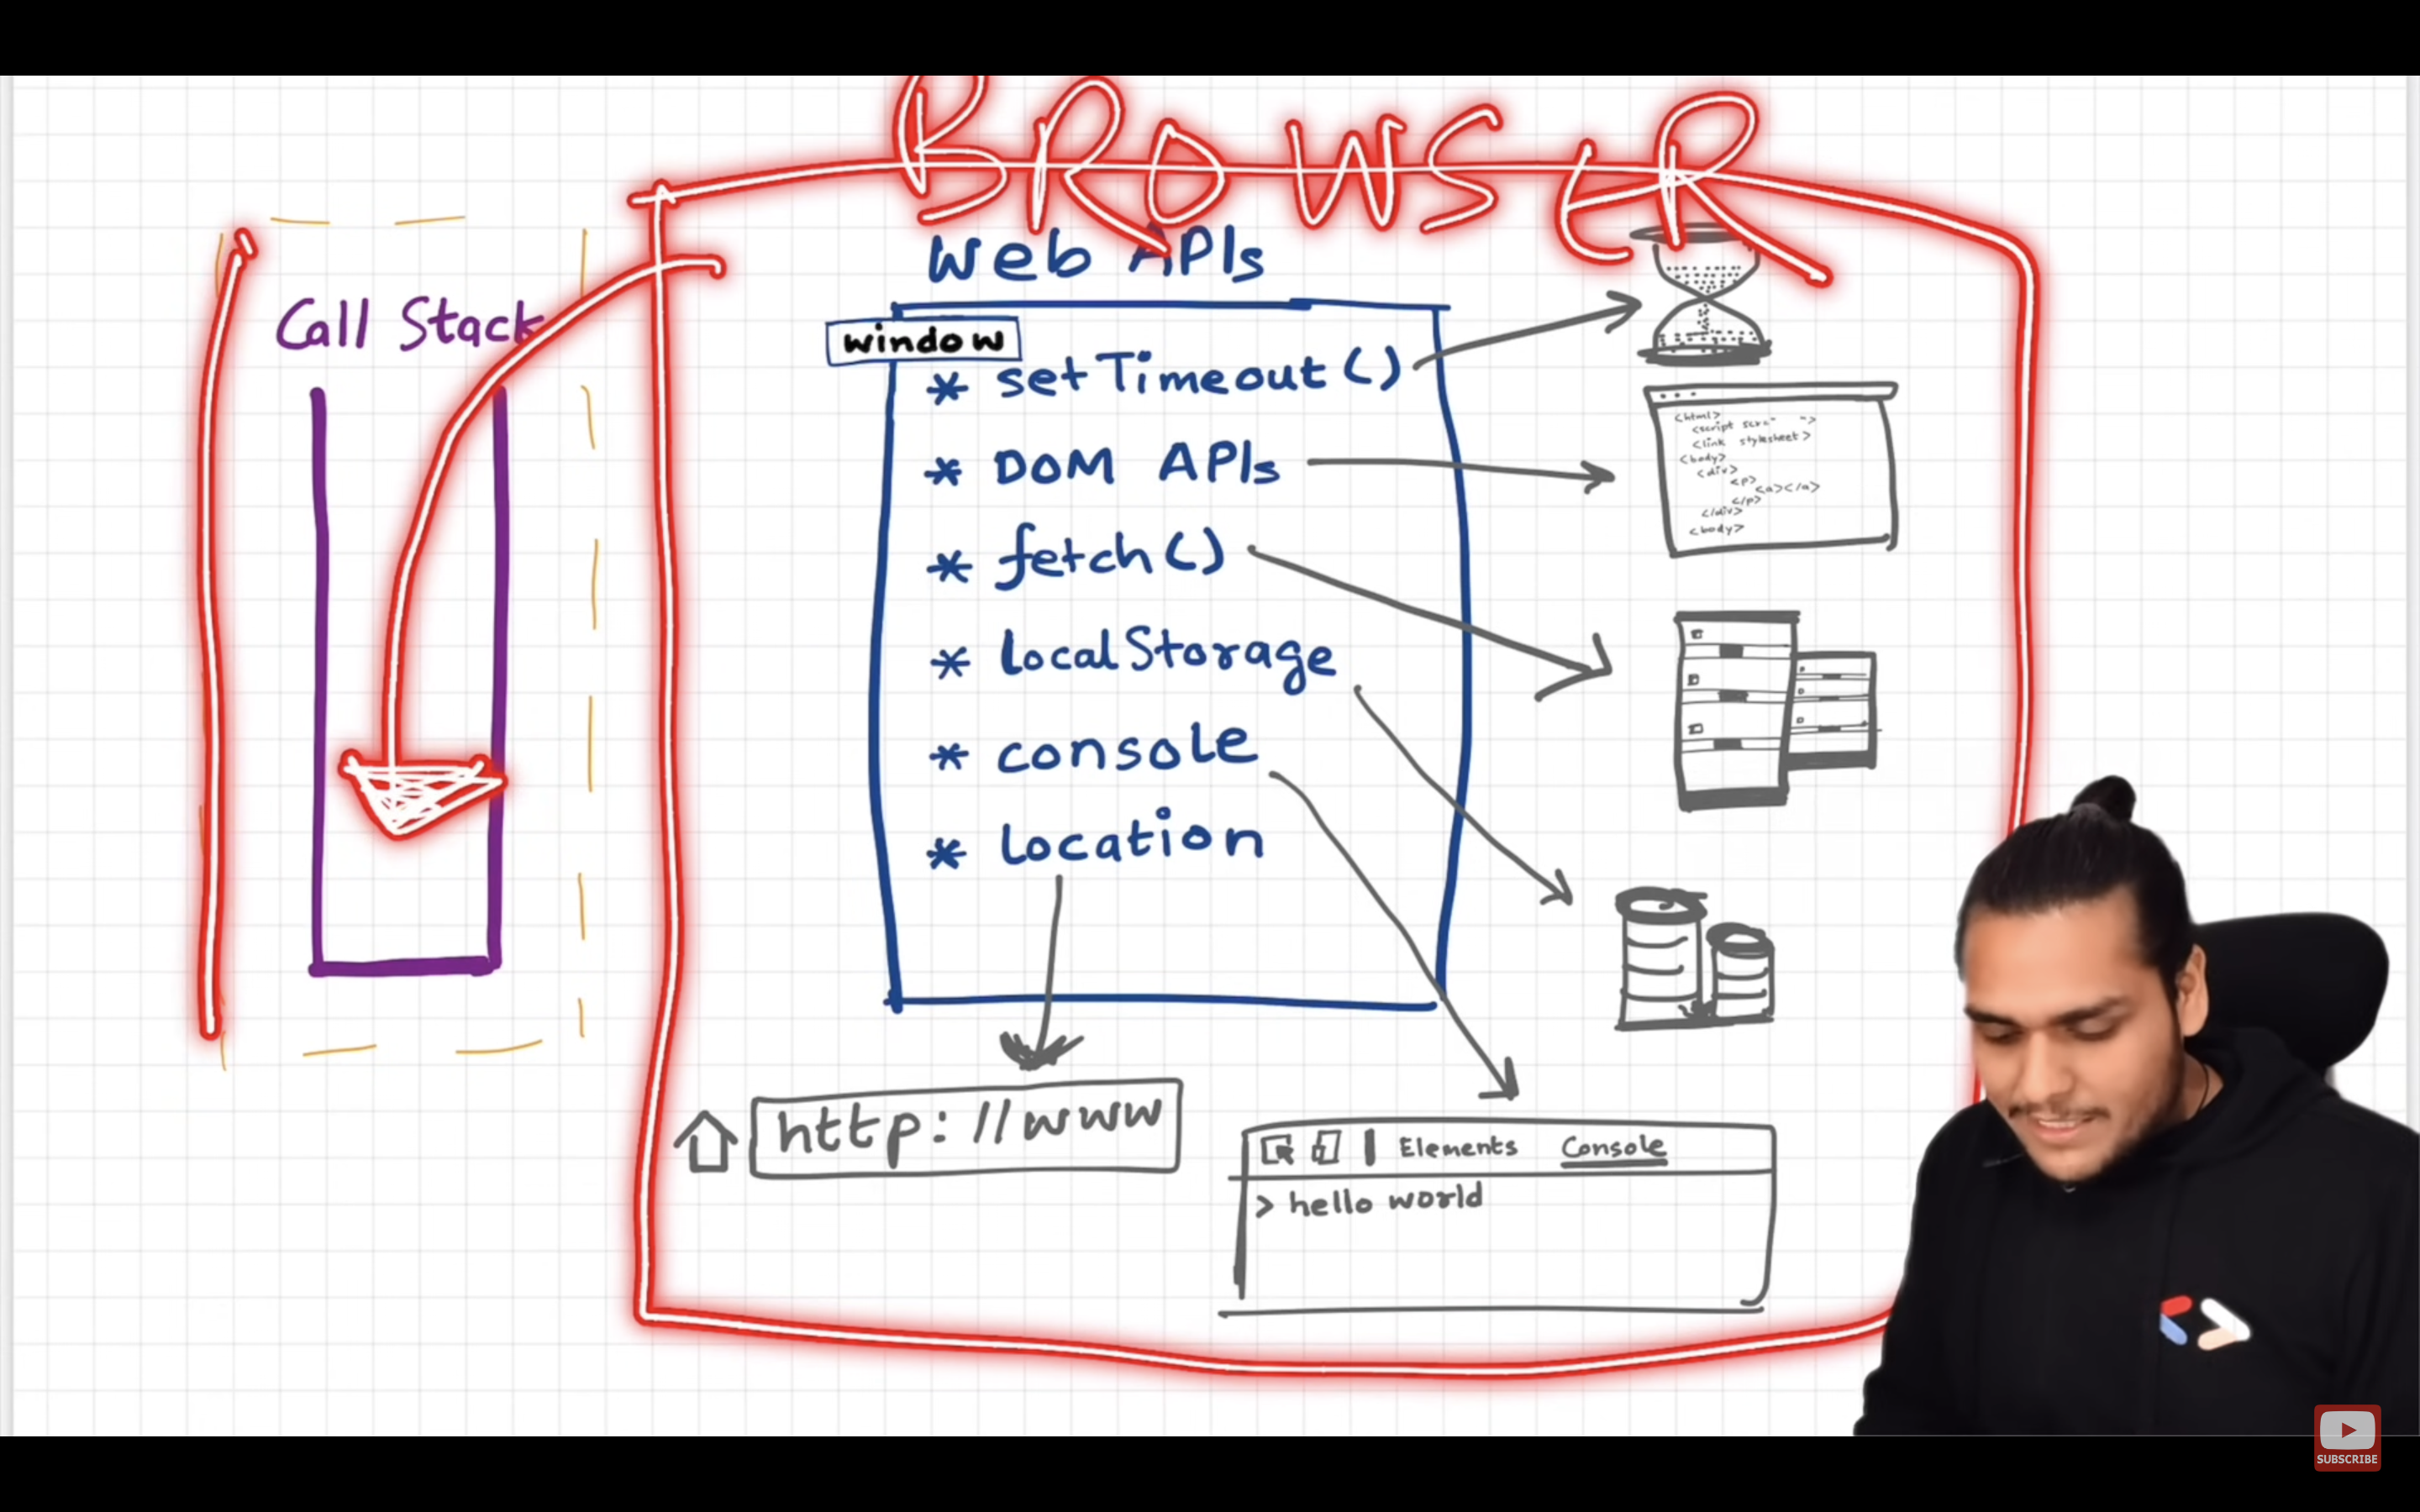 BROWSER
Web APIs
Call Stack
window
* setTimeout()
* DOM APIs
* fetch()
* localStorage
* console
* location
<html>
<link stylesheet>
<body>
<div>
<p>
<a></a>
</p>
</div>
<body>
http://www
Elements Console
> hello world
SUBSCRIBE